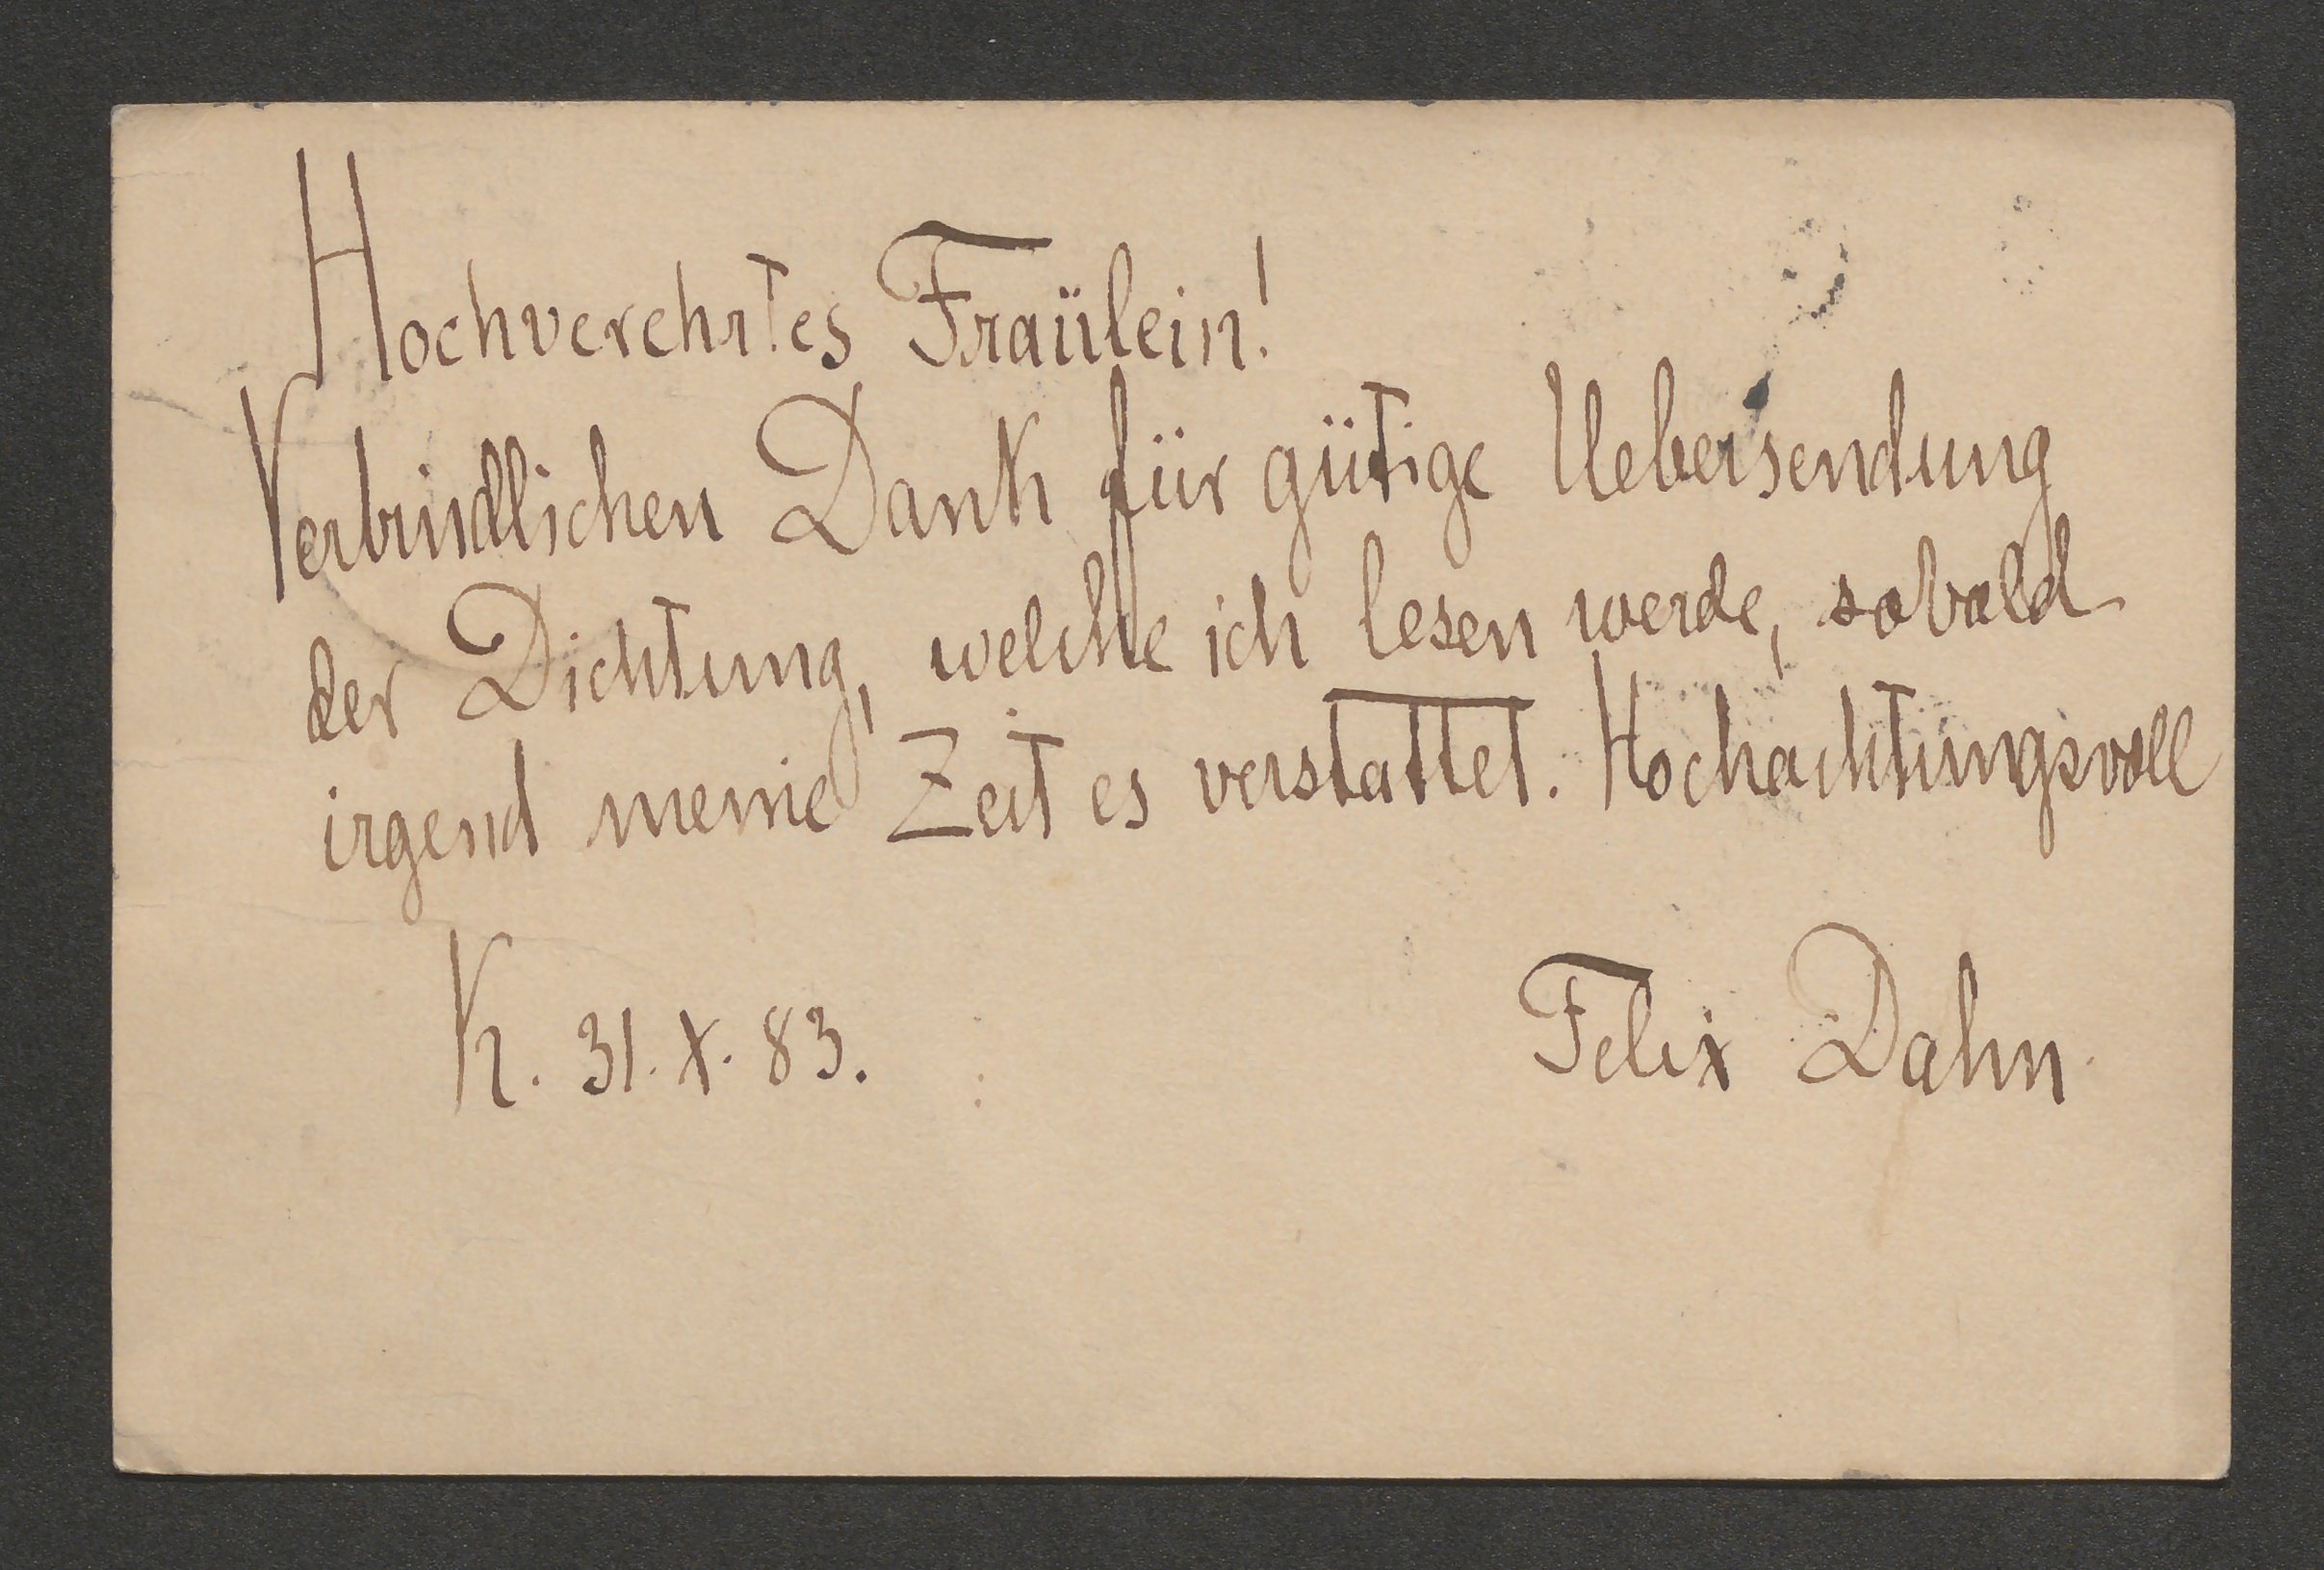 Hochverehrtes Fraülein!
Verbindlichen Dank für gütige Uebersendung
der Dichtung, welche ich lesen werde, sobald
irgend meine Zeit es verstattet. Hochachtungsvoll
K. 31. X. 83.
Felix Dahn.